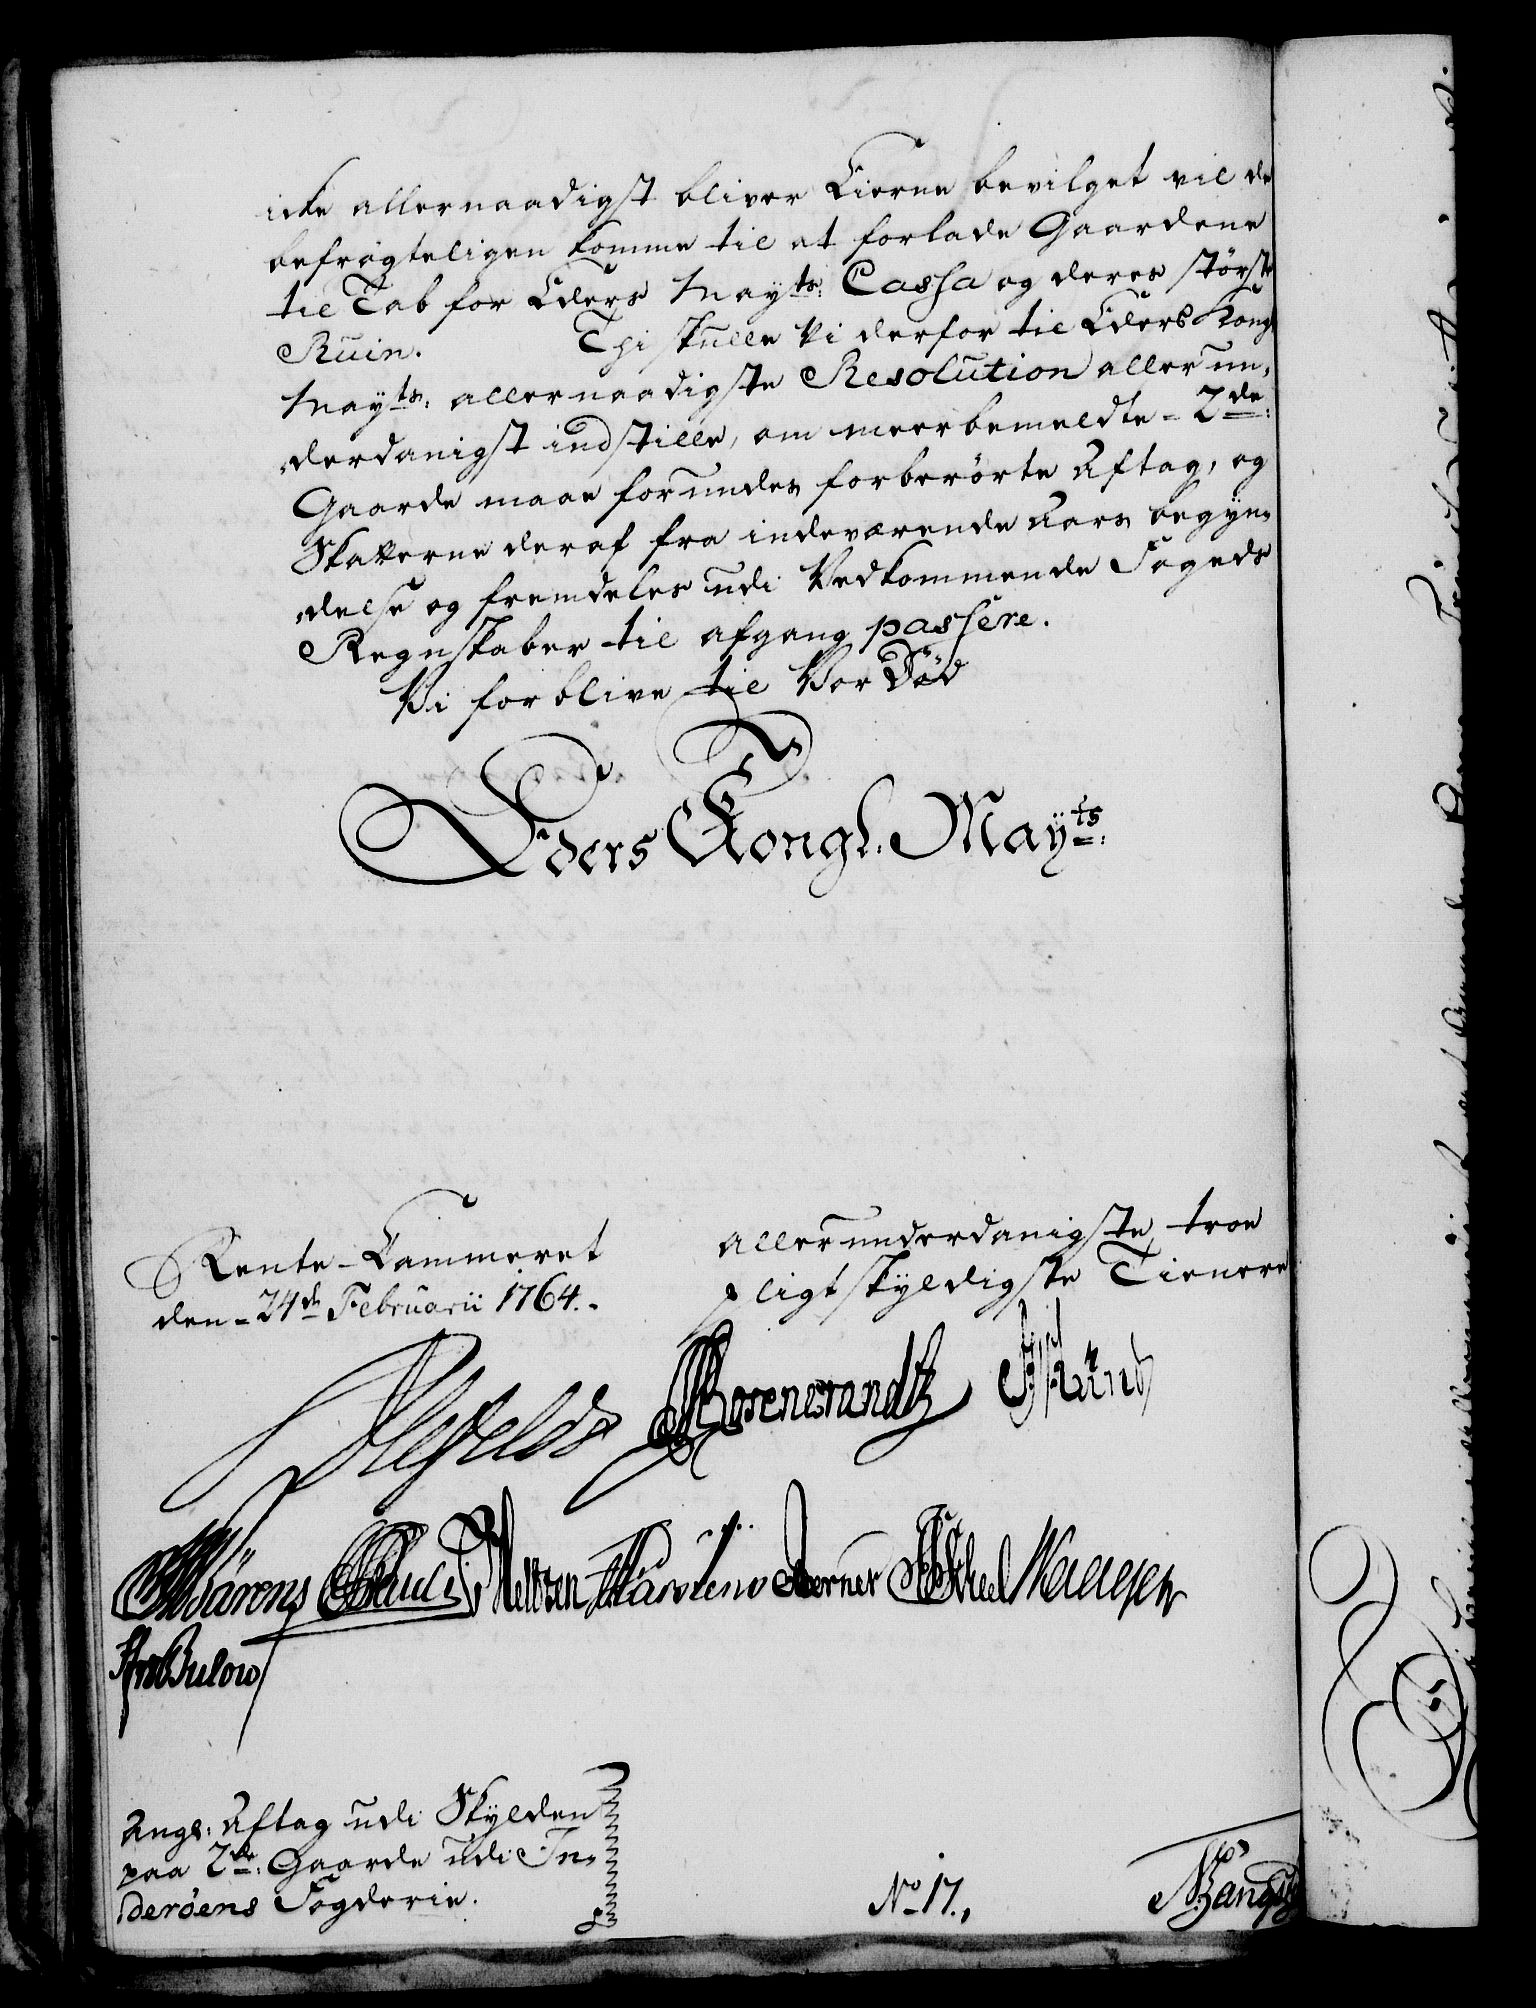 icke allernaadigst bliver Eierne bevilget vil de
befrögteligen komme til at forlade Gaardene
til Tab for Eders Mayts: Cassa og deres störste
Ruin. Thi skulle Vi derfor til Eders Kongl
Mayts: allernaadigste Resolution allerun,
,derdanigst indstille, om meerbemeldte - 2de:
Gaarde maae forundes forberörte Aftag, og
Skatterne deraf fra indeværende Aars begyn,
,delse og fremdeles udi Vedkommende Fogeds
Regnskaber til afgang passere.
Vi forblive til Vor Död
Eders Kongl. Mayts:
Rente-Cammeret
den - 24de Februarii 1764.
allerunderdanigste, troe
pligtskyldigste Tienere
Ahlefeldt Rosencrandtz
Bärens Weltzen Berner
Bulow
Angl: Aftag udi Skylden
paa 2de: Gaarde udi In,
deröens Fogderie.
No 17.,